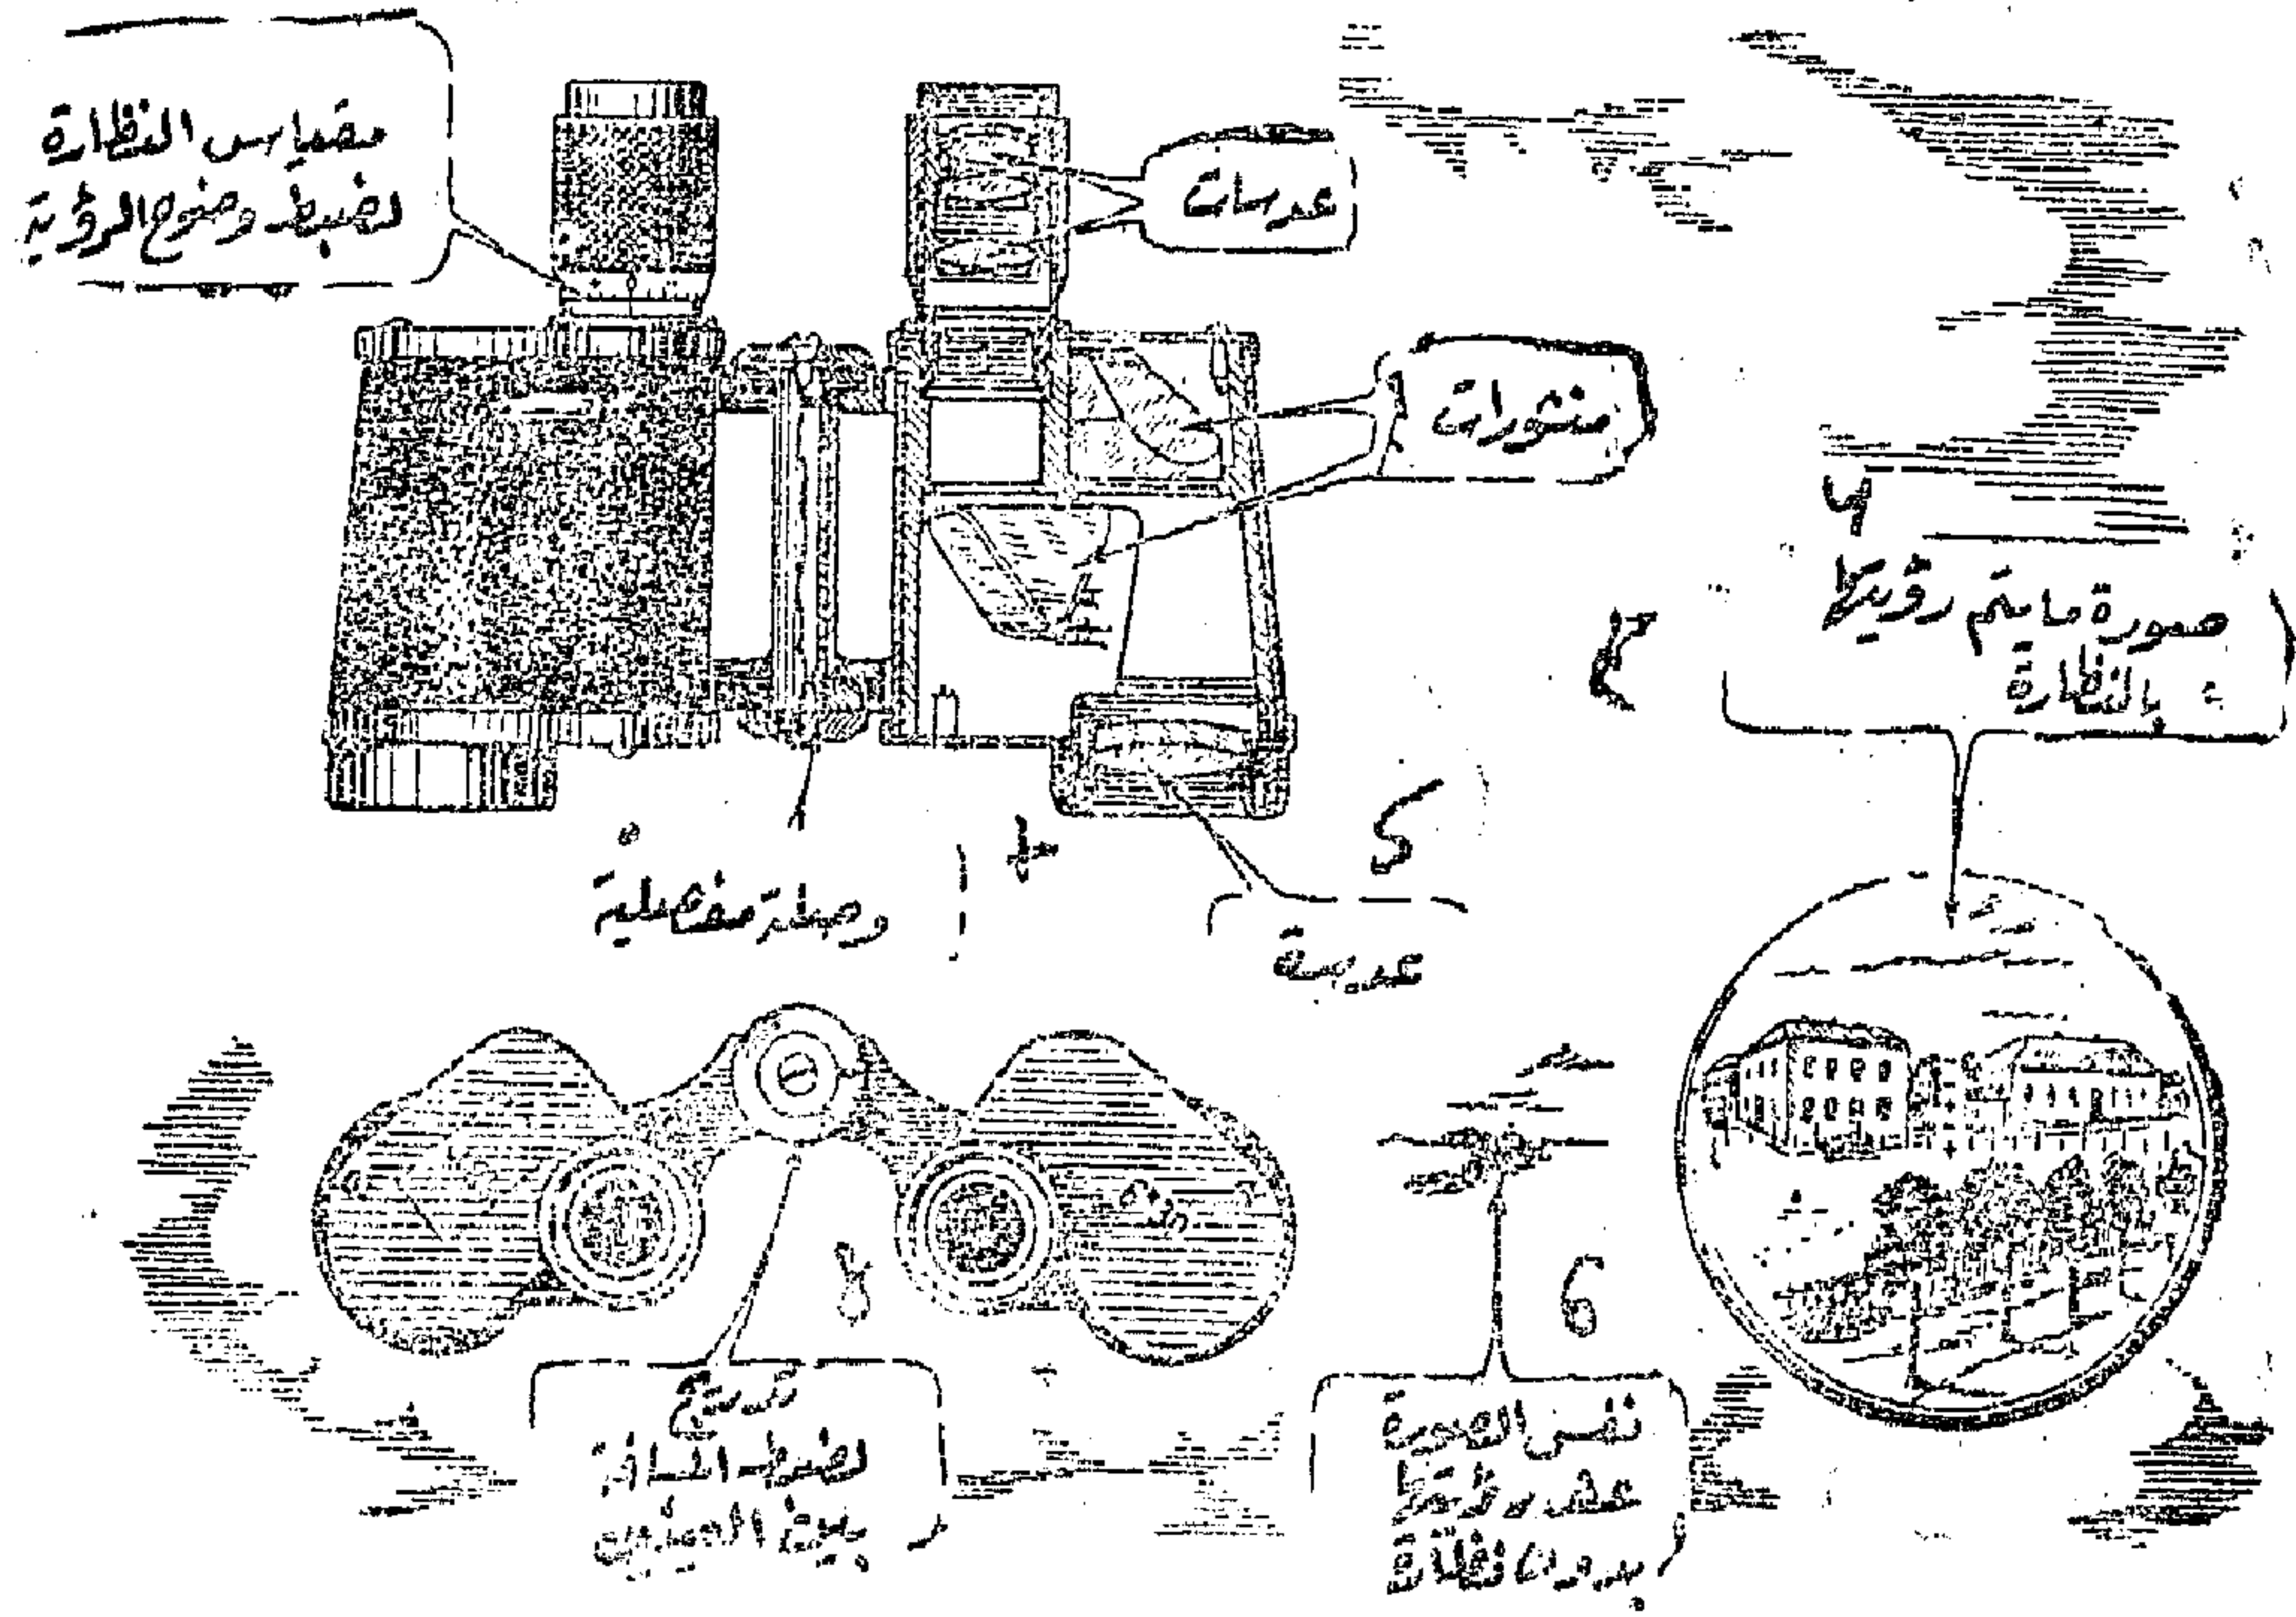 مقياس النظارة
لضبط وضوح الرؤية
عدسات
منشورات
صورة ما يتم رؤيتها
بالنظارة
5
وصلة مفصلية
عدسة
6
تدريج
لضبط المسافة
بين العينين
نفس الصورة
عند رؤيتها
بدون نظارة